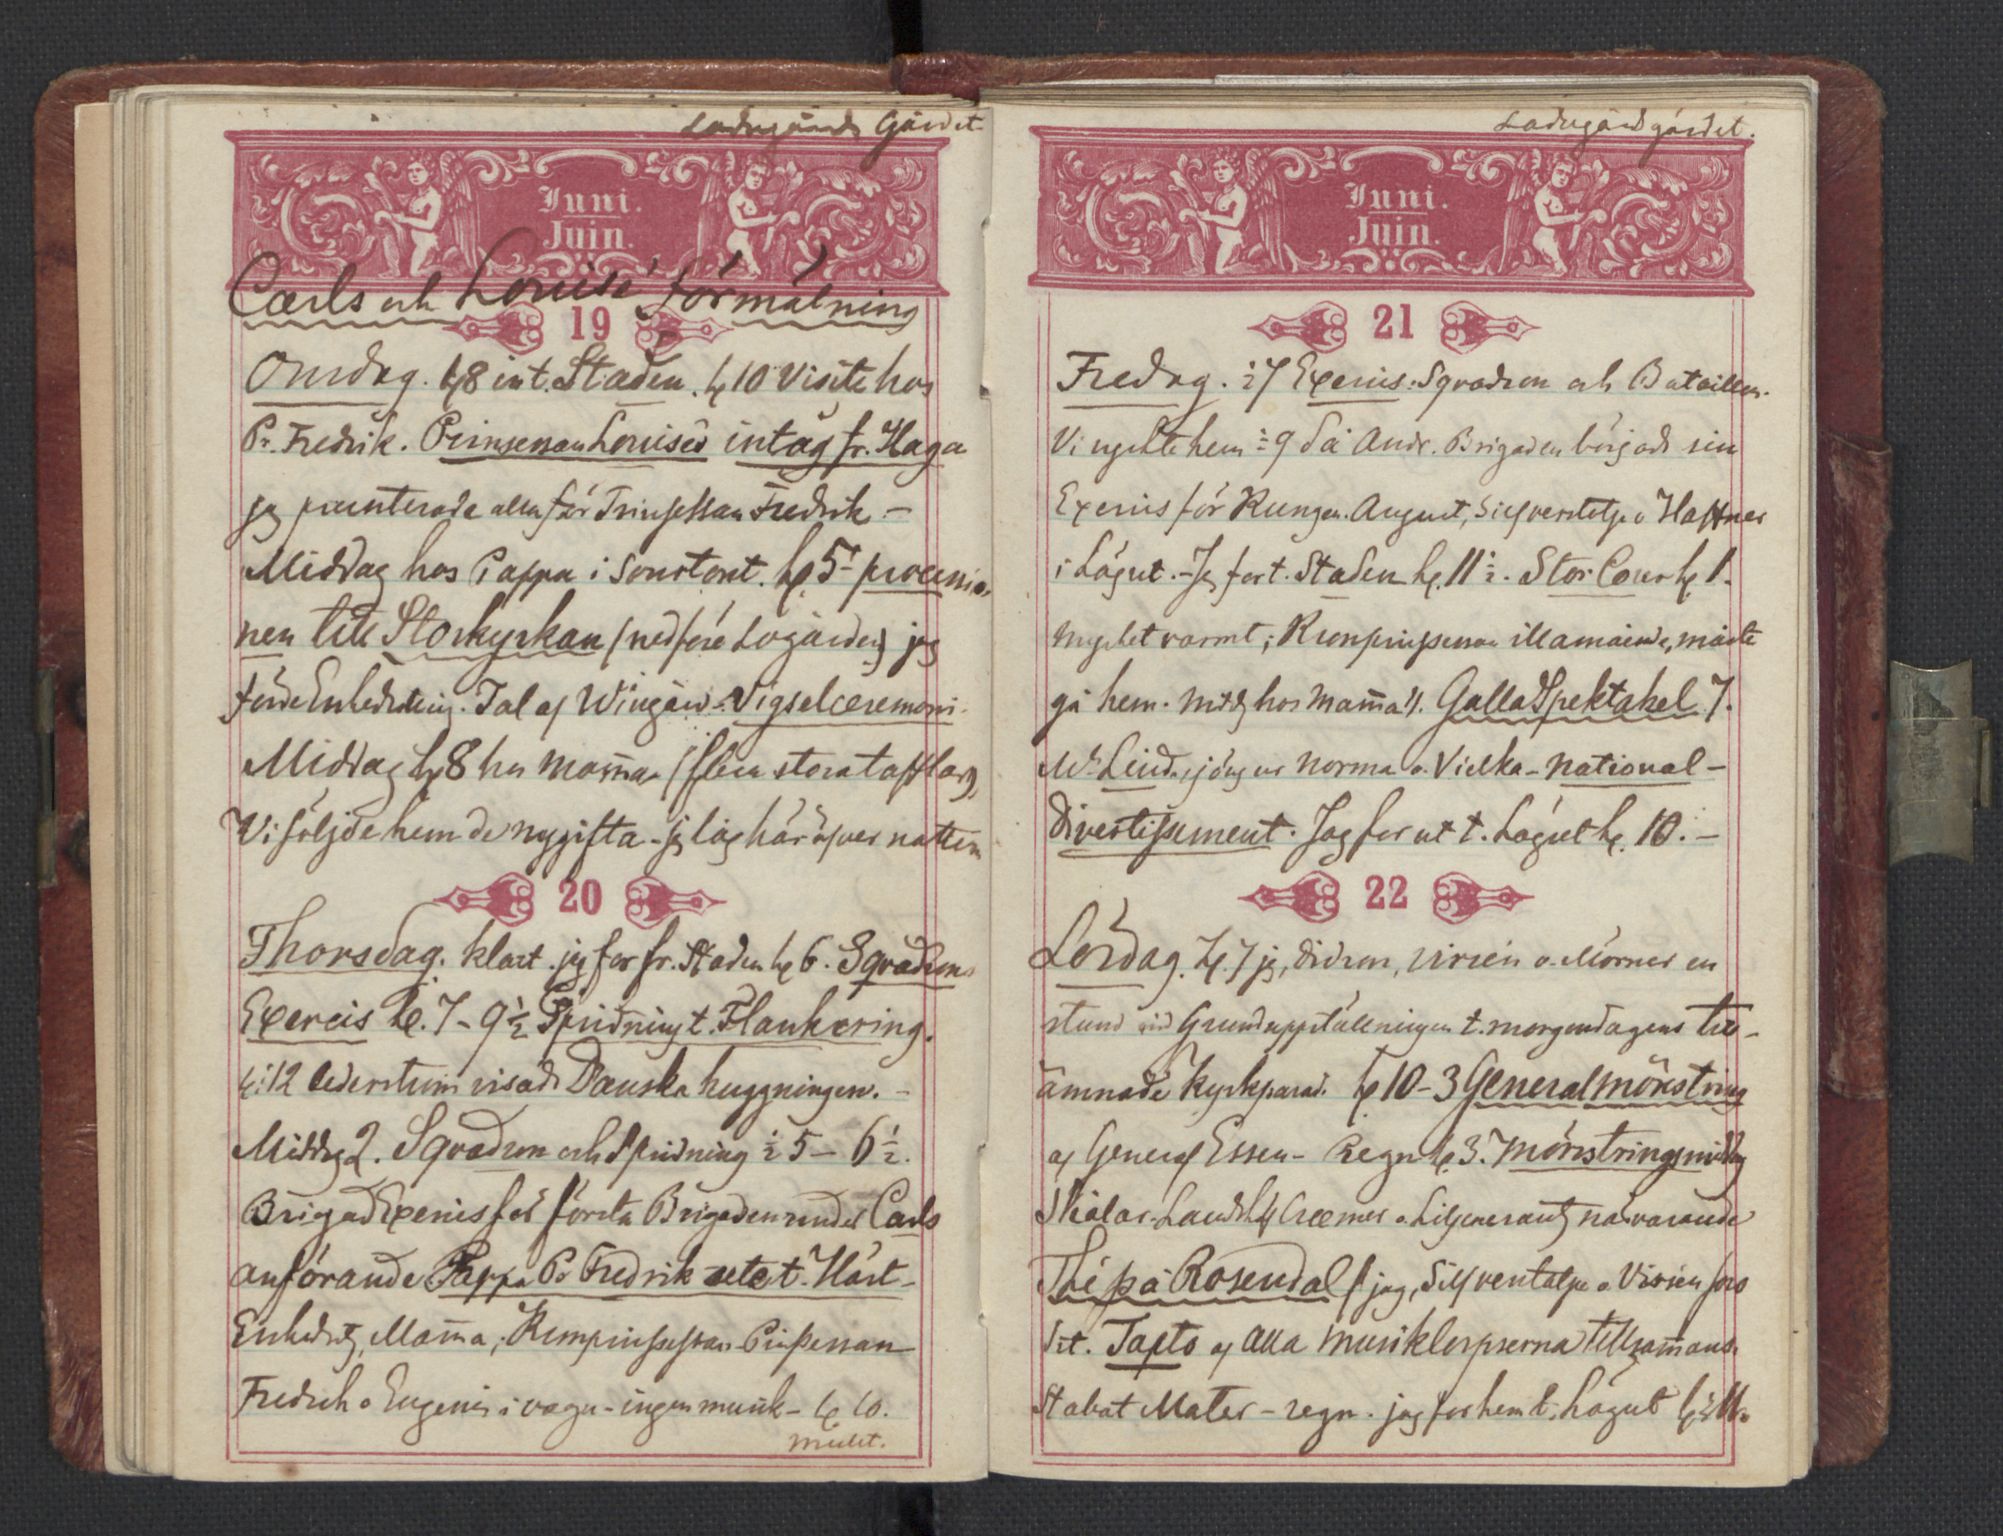 Ladugårds Gärdet
Juni.
Juin.
Carls och Louises förmälning
19
Onsdag. kl 8 in t. Staden. kl 10 visite hos
Pr. Fredrik. Prinsessan Louises intåg fr. Haga
jg presenterade alla för Prinsessan Fredrik –
Middag hos Pappa i kl. 5 processio-
nen till Storkyrkan (nedföre Logården) jag
förde Enkedrotning. Tal af Wingård. Vigselceremoni.
Middag kl 8 hos Mamma (flera stora tafflar),
Vi följde hem de nygifta – jg låg här öfver natten
20
Thorsdag. klart. jg for fr. Staden kl 6. Sqvadrons
Exercis kl. 7 – 9 ½ Spridning t. Flankering.
kl. 12 Cederström visade Danska huggningen. –
Middag 2. Sqvadron och Spridning ½ 5 – 6 ½.
Brigad Exercis för första Brigaden under Carls
anförande Pappa Pr Fredrik ute t. Häst –
Enkedrotg, Mamma, Kronprinsessan Prinsessan
Fredrik o Eugenie i vagn – ingen musik – kl 10.
mulet.
Ladugårdsgärdet.
Juni.
Juin.
21
Fredag. ½ 7 Exercis: Sqvadron och Bataillon.
Vi ryckte hem ½ 9 då Andr. Brigaden började sin
Exercis för Kungen. August, Silfverstolpe o Haffner
i Lägret. – Jg for t. Staden kl. 11 ½. Stor Cour kl 1.
mycket varmt; Kronprinsessan illamående, måste
gå hem. Middg hos Mamma 4. Galla Spektakel 7.
Mll Lind sjöng ur Norma o. Vielka – national –
divertissement. Jag for ut t. Lägret kl. 10. –
22
Lördag. kl. 7 jg, Didron, Virsén o. Mörner en
stund vid Grunduppställningen t. morgondagens till-
ämnade Kyrkparad. kl 10 – 3 Generalmönstring
af General Essen – Regn kl 3. Mönstringsmiddag
Skålar. Landshf Cræmer o. Liljencrantz närvarande
Thé på Rosendal / jag, Silfverstolpe o Virsén foro
dit. Tapto af alla musikkorpserna tillsammans.
Stabat Mater – regn. jag for hem t. Lägret kl ½ 11.